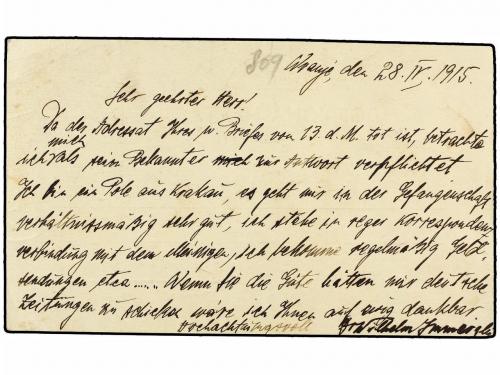 309
den 28. IV. 1915.
Sehr geehrter Herr!
Da der Adressat Ihres w. Briefes vom 13. d. M. tot ist, betrachte
mich
ich als sein Bekannter mich zur Antwort verpflichtet
Ich bin ein Pole aus Krakau, es geht mir in der Gefangenschaft
verhältnissmäßig sehr gut, ich stehe in reger Korrespondenz
verbindung mit dem meinigen, ich bekomme regelmäßig Geld
sendungen etca...... Wenn Sie die Güte hätten mir deutsche
Zeitungen zu schicken wäre ich Ihnen auf ewig dankbar
Hochachtungsvoll Dr Wilhelm